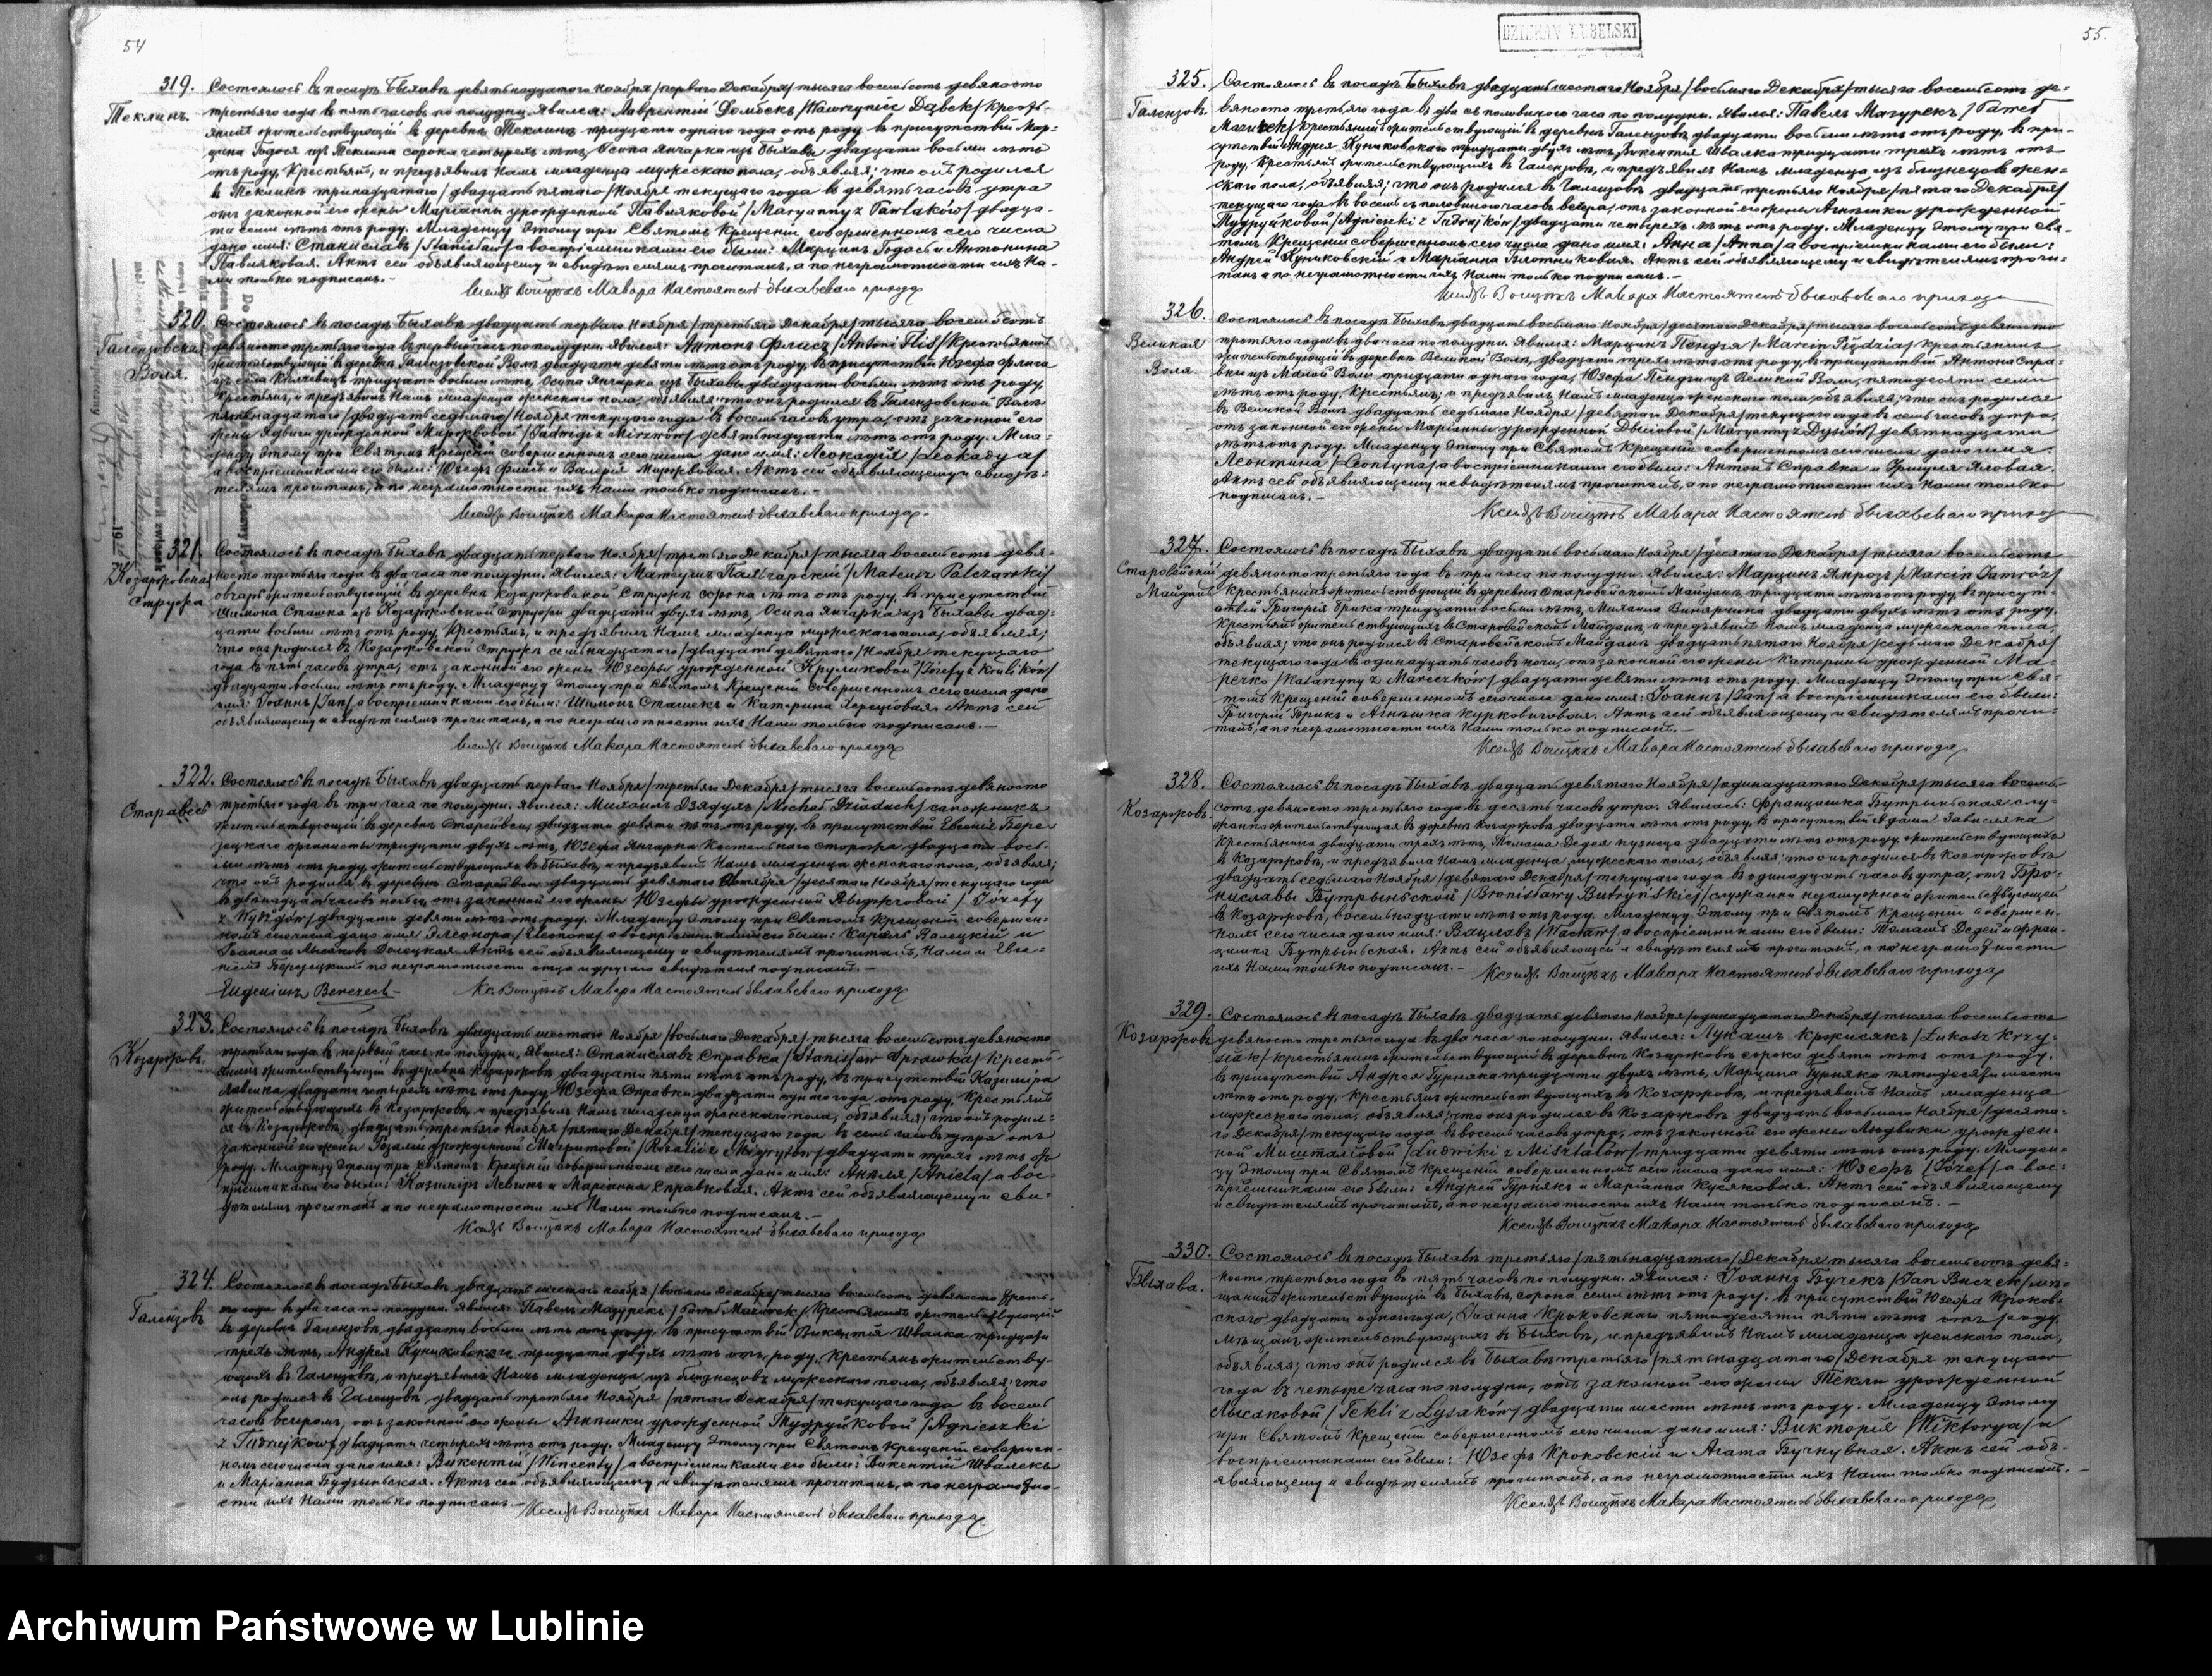 54
319.
Теклинъ.
Состоялось въ посадѣ Быхавѣ девятьнадцатаго Ноября/перваго Декабря/тысяча восемьсотъ девяносто
третьяго года въ пять часовъ по полудни. Явился: Лаврентій Домбекъ/Wawrzyniec Dąbek/кресть-
янинъ жительствующій въ деревнѣ Теклинѣ тридцати одного года отъ роду, въ присутствіи Мар-
цина Годося изъ Теклина сорока четырехъ лѣтъ, Осипа Янчарка изъ Быхавы двадцати восьми лѣтъ
отъ роду, Крестьянъ, и предъявилъ Намъ младенца мужескаго пола, объявляя; что онъ родился
въ Теклинѣ тринадцатаго/двадцать пятаго/Ноября текущаго года въ девять часовъ утра
отъ законной его жены Маріанны урожденной Павляковой/Maryanny z Pawlaków/двадца-
ти семи лѣтъ отъ роду. Младенцу этому при Святомъ Крещеніи совершенномъ сего числа
дано имя: Станиславъ/Stanisław/а воспріемниками его были: Марцинъ Годось и Антонина
Павляковая. Актъ сей объявляющему и свидѣтелямъ прочитанъ, а по неграмотности ихъ На-
ми только подписанъ.-
Ксендзъ Войцѣхъ Макара Настоятель быхавскаго прихода
320.
Галензовская
Воля.
Состоялось въ посадѣ Быхавѣ двадцать перваго Ноября/третьяго Декабря/тысяча восемьсотъ
девяносто третьяго года въ первый часъ по полудни. Явился: Антонъ Флисъ/Antoni Flis/крестьянинъ
жительствующій въ деревнѣ Галензовской Волѣ двадцати девяти лѣтъ отъ роду, въ присутствіи Юзефа Флиса
тридцати восьми лѣтъ, Осипа Янчарка изъ Быхавы двадцати восьми лѣтъ отъ роду,
Крестьянъ, и предъявилъ Намъ младенца женскаго пола, объявляя; что онъ родился въ Галензовской Волѣ
пятьнадцатаго/двадцать седьмаго/Ноября текущаго года въ восемь часовъ утра, отъ законной его
жены Ядвиги урожденной Миржвовой/Jadwigi z Mirzwów/девятьнадцати лѣтъ отъ роду. Мла-
денцу этому при Святомъ Крещеніи совершенномъ сего числа дано имя: Леокадія/Leokadya/
а воспріемниками его были: Юзефъ Флисъ и Валерія Миржвовая. Актъ сей объявляющему и свидѣ-
телямъ прочитанъ, а по неграмотности ихъ Нами только подписанъ.-
Ксендзъ Войцѣхъ Макара Настоятель быхавскаго прихода.
321.
Козаржовская
Стружа
Состоялось въ посадѣ Быхавѣ двадцать перваго Ноября/третьяго Декабря/тысяча восемьсотъ девя-
носто третьяго года въ два часа по полудни. Явился: Матеушъ Пальчарскій/Mateusz Palczarski/
овчаръ жительствующій въ деревнѣ Козаржовской Стружѣ сорока лѣтъ отъ роду, въ присутствіи
Шимона Сташка изъ Козаржовской Стружи двадцати двухъ лѣтъ, Осипа Янчарка изъ Быхавы двад-
цати восьми лѣтъ отъ роду, Крестьянъ, и предъявилъ Намъ младенца мужескаго пола, объявляя;
что онъ родился въ Козаржовской Стружѣ семьнадцатаго/двадцать девятаго/Ноября текущаго
года въ пять часовъ утра, отъ законной его жены Юзефы урожденной Круликовой/Józefy z Królików/
двадцати восьми лѣтъ отъ роду. Младенцу этому при Святомъ Крещеніи совершенномъ сего числа дано
имя: Іоаннъ/Jan/а воспріемниками его были: Шимонъ Сташекъ и Катерина. Актъ сей
объявляющему и свидѣтелямъ прочитанъ, а по неграмотности ихъ Нами только подписанъ.-
Ксендзъ Войцѣхъ Макара Настоятель быхавскаго прихода
322.
Старавесь
Состоялось въ посадѣ Быхавѣ двадцать перваго Ноября/третьяго Декабря/тысяча восемьсотъ девяносто
третьяго года въ три часа по полудни. Явился: Михаилъ Дзядухъ/Michał Dziaduch/сапожникъ
жительствующій въ деревнѣ двадцати девяти лѣтъ отъ роду, въ присутствіи Евгенія Бере-
зецкаго органисты тридцати двухъ лѣтъ, Юзефа Янчарка Костельнаго сторожа двадцати вось-
ми лѣтъ отъ роду, жительствующихъ въ Быхавѣ, и предъявилъ Намъ младенца женскаго пола, объявляя;
что онъ родился въ деревнѣ двадцать девятаго Октября/десятаго Ноября/текущаго года
въ двѣнадцать часовъ ночи, отъ законной его жены Юзефы урожденной/Józefy
двадцати девяти лѣтъ отъ роду. Младенцу этому при Святомъ Крещеніи совершен-
номъ сего числа дано имя Элеонора/Eleonora/а воспріемниками его были: Кароль и
Іоанна. Актъ сей объявляющему и свидѣтелямъ прочитанъ, Нами и Евге-
ніемъ Березецкимъ по неграмотности отца и другаго свидѣтеля подписанъ.-
Кс. Войцѣхъ Макара Настоятель быхавскаго прихода
323.
Козаржовъ.
Состоялось въ посадѣ Быхавѣ двадцать шестаго Ноября/восьмаго Декабря/тысяча восемьсотъ девяносто
третьяго года въ первый часъ по полудни. Явился: Станиславъ Справка/Stanisław Sprawka/кресть-
янинъ жительствующій въ деревнѣ Козаржовѣ двадцати пяти лѣтъ отъ роду, въ присутствіи Казимѣра
двадцати четырехъ лѣтъ отъ роду, Юзефа Справки двадцати одного года отъ роду, Крестьянъ
жительствующихъ въ Козаржовѣ, и предъявилъ Намъ младенца женскаго пола, объявляя; что онъ родил-
ся въ Козаржовѣ двадцать третьяго Ноября/пятаго Декабря/текущаго года въ семь часовъ утра отъ
законной его жены Розаліи урожденной/Rozalii z двадцати трехъ лѣтъ отъ
роду. Младенцу этому при Святомъ Крещеніи совершенномъ сего числа дано имя: Анеля/Aniela/а вос-
пріемниками его были: Казимѣръ и Маріанна Справковая. Актъ сей объявляющему и сви-
дѣтелямъ прочитанъ а по неграмотности ихъ Нами только подписанъ.-
Ксендзъ Войцѣхъ Макара Настоятель быхавскаго прихода
324.
Галензовъ
Состоялось въ посадѣ Быхавѣ двадцать шестаго Ноября/восьмаго Декабря/тысяча восемьсотъ девяносто треть-
яго года въ два часа по полудни. Явился: Павелъ Мазурекъ/Paweł Mazurek/Крестьянинъ жительствующій
въ деревнѣ Галензовѣ, двадцати восьми лѣтъ отъ роду, въ присутствіи Викентія Швалка тридцати
трехъ лѣтъ, Андрея Куниковскаго тридцати двухъ лѣтъ отъ роду, Крестьянъ жительству-
ющихъ въ Галензовѣ, и предъявилъ Намъ младенца изъ близнецовъ мужескаго пола, объявляя; что
онъ родился въ Галензовѣ двадцать третьяго Ноября/пятаго Декабря/текущаго года въ восемь
часовъ вечеромъ, отъ законной его жены Агнѣшки урожденной Тудруйковой/Agnieszki
z двадцати четырехъ лѣтъ отъ роду. Младенцу этому при Святомъ Крещеніи совершен-
номъ сего числа дано имя: Викентій/Wincenty/а воспріемниками его были: Викентій Швалекъ
и Маріанна. Актъ сей объявляющему и свидѣтелямъ прочитанъ, а по неграмотно-
сти ихъ Нами только подписанъ.-
Ксендзъ Войцѣхъ Макара Настоятель быхавскаго прихода
DZIEKAN LUBELSKI
55.
325.
Галензовъ.
Состоялось въ посадѣ Быхавѣ двадцать шестаго Ноября/восьмаго Декабря/тысяча восемьсотъ де-
вяносто третьяго года въ два съ половиною часа по полудни. Явился: Павелъ Мазурекъ/Paweł
Mazurek/крестьянинъ жительствующій въ деревнѣ Галензовѣ двадцати восьми лѣтъ отъ роду, въ при-
сутствіи Андрея Куниковскаго тридцати двухъ лѣтъ, Викентія Швалка тридцати трехъ лѣтъ отъ
роду, Крестьянъ жительствующихъ въ Галензовѣ, и предъявилъ Намъ младенца изъ близнецовъ жен-
скаго пола, объявляя; что онъ родился въ Галензовѣ двадцать третьяго Ноября/пятаго Декабря/
текущаго года въ восемь съ половиною часовъ вечера, отъ законной его жены Агнѣшки урожденной
Тудруйковой/Agnieszki z Tudrujków/двадцати четырехъ лѣтъ отъ роду. Младенцу этому при Свя-
томъ Крещеніи совершенномъ сего числа дано имя: Анна/Anna/а воспріемниками его были:
Андрей Куниковскій и Маріанна. Актъ сей объявляющему и свидѣтелямъ прочи-
танъ а по неграмотности ихъ Нами только подписанъ.-
Ксендзъ Войцѣхъ Макара Настоятель быхавскаго прихода
326.
Великая
Воля.
Состоялось въ посадѣ Быхавѣ двадцать восьмаго Ноября/десятаго Декабря/тысяча восемьсотъ девяносто
третьяго года въ два часа по полудни. Явился: Марцинъ Пендзя/Marcin Pędzia/Крестьянинъ
жительствующій въ деревнѣ Великой Волѣ, двадцати трехъ лѣтъ отъ роду, въ присутствіи Антона Спра-
вки изъ Малой Воли тридцати одного года, Юзефа Пендзи изъ Великой Воли, пятидесяти семи
лѣтъ отъ роду, Крестьянъ; и предъявилъ Намъ младенца женскаго пола, объявляя; что онъ родился
въ Великой Волѣ двадцать седьмаго Ноября/девятаго Декабря/текущаго года въ семь часовъ утра,
отъ законной его жены Маріанны урожденной Дысювой/Maryanny z Dysiów/девятнадцати
лѣтъ отъ роду. Младенцу этому при Святомъ Крещеніи совершенномъ сего числа дано имя
Леонтина/Leontyna/а воспріемниками его были: Антонъ Справка и Яловая.
Актъ сей объявляющему и свидѣтелямъ прочитанъ, а по неграмотности ихъ Нами только
подписанъ.-
Ксендзъ Войцѣхъ Макара Настоятель быхавскаго прихода
327.
Старовейскій
Майданъ
Состоялось въ посадѣ Быхавѣ двадцать восьмаго Ноября/десятаго Декабря/тысяча восемьсотъ
девяносто третьяго года въ три часа по полудни. Явился: Марцинъ Ямрозъ/Marcin Jamróz/
Крестьянинъ жительствующій въ деревнѣ Старовейскомъ Майданѣ, тридцати лѣтъ отъ роду, въ присут-
ствіи Григорія Брика тридцати восьми лѣтъ, Михаила Винярчика двадцати двухъ лѣтъ отъ роду,
Крестьянъ жительствующихъ въ Старовейскомъ Майданѣ, и предъявилъ Намъ младенца мужескаго пола,
объявляя; что онъ родился въ Старовейскомъ Майданѣ двадцать пятаго Ноября/седьмаго Декабря/
текущаго года въ одинадцать часовъ ночи, отъ законной его жены Катерины урожденной Ма-
речко/Katarzyny z Mareczków/двадцати девяти лѣтъ отъ роду. Младенцу этому при Свя-
томъ Крещеніи совершенномъ сего числа дано имя: Іоаннъ/Jan/а воспріемниками его были:
Григорій Брикъ и Агнѣшка. Актъ сей объявляющему и свидѣтелямъ прочи-
танъ, а по неграмотности ихъ Нами только подписанъ.-
Ксендзъ Войцѣхъ Макара Настоятель быхавскаго прихода
328.
Козаржовъ.
Состоялось въ посадѣ Быхавѣ двадцать девятаго Ноября/одинадцатаго Декабря/тысяча восемь-
сотъ девяносто третьяго года въ десять часовъ утра. Явилась: Францишка Бутрыньская слу-
жанка жительствующая въ деревнѣ Козаржовѣ двадцати лѣтъ отъ роду, въ присутствіи Адама Зависляка
Крестьянина двадцати трехъ лѣтъ, Томаша Дедея кузнеца двадцати лѣтъ отъ роду, жительствующихъ
въ Козаржовѣ, и предъявила Намъ младенца мужескаго пола, объявляя; что онъ родился въ Козаржовѣ
двадцать седьмаго Ноября/девятаго Декабря/текущаго года въ одинадцать часовъ утра, отъ Бро-
ниславы Бутрыньской/Bronisławy Butryńskiej/служанки незамужной жительствующей
въ Козаржовѣ, восемьнадцати лѣтъ отъ роду. Младенцу этому при Святомъ Крещеніи совершен-
номъ сего числа дано имя: Вацлавъ/Wacław/а воспріемниками его были: Томашъ Дедей и Фран-
цишка Бутрыньская. Актъ сей объявляющей и свидѣтелямъ прочитанъ, а по неграмотности
ихъ Нами только подписанъ.-
Ксендзъ Войцѣхъ Макара Настоятель быхавскаго прихода
329.
Козаржовъ
Состоялось въ посадѣ Быхавѣ двадцать девятаго Ноября/одинадцатаго Декабря/тысяча восемьсотъ
девяносто третьяго года въ два часа по полудни. Явился: Лукашъ Кржисякъ/Łukasz Krzy-
siak/крестьянинъ жительствующій въ деревнѣ Козаржовѣ сорока девяти лѣтъ отъ роду,
въ присутствіи Андрея Гурняка тридцати двухъ лѣтъ, Марцина Гурняка пятидесяти шести
лѣтъ отъ роду, Крестьянъ жительствующихъ въ Козаржовѣ, и предъявилъ Намъ младенца
мужескаго пола, объявляя; что онъ родился въ Козаржовѣ двадцать восьмаго Ноября/десята-
го Декабря/текущаго года въ восемь часовъ утра, отъ законной его жены Людвики урожден-
ной Мишталовой/Ludwiki z Misztalów/тридцати девяти лѣтъ отъ роду. Младен-
цу этому при Святомъ Крещеніи совершенномъ сего числа дано имя: Юзефъ/Józef/а вос-
пріемниками его были: Андрей Гурнякъ и Маріанна Кусяковая. Актъ сей объявляющему
и свидѣтелямъ прочитанъ, а по неграмотности ихъ Нами только подписанъ.-
Ксендзъ Войцѣхъ Макара Настоятель быхавскаго прихода
330.
Быхава.
Состоялось въ посадѣ Быхавѣ третьяго/пятьнадцатаго/Декабря тысяча восемьсотъ девя-
носто третьяго года въ пять часовъ по полудни. Явился: Іоаннъ Бучекъ/Jan Buczek/мѣ-
щанинъ жительствующій въ Быхавѣ, сорока семи лѣтъ отъ роду, въ присутствіи Юзефа Кроков-
скаго двадцати одного года, Іоанна Кроковскаго пятидесяти пяти лѣтъ отъ роду,
Мѣщанъ, жительствующихъ въ Быхавѣ, и предъявилъ Намъ младенца женскаго пола,
объявляя; что онъ родился въ Быхавѣ третьяго/пятьнадцатаго/Декабря текущаго
года въ четыре часа по полудни, отъ законной его жены Текли урожденной
Лысаковой/Tekli z Łysaków/двадцати шести лѣтъ отъ роду. Младенцу этому
при Святомъ Крещеніи совершенномъ сего числа дано имя: Викторія/Wiktorya/а
воспріемниками его были: Юзефъ Кроковскій и Агата Бучкувная. Актъ сей объ-
являющему и свидѣтелямъ прочитанъ, а по неграмотности ихъ Нами только подписанъ.-
Ксендзъ Войцѣхъ Макара Настоятель быхавскаго прихода
Archiwum Państwowe w Lublinie